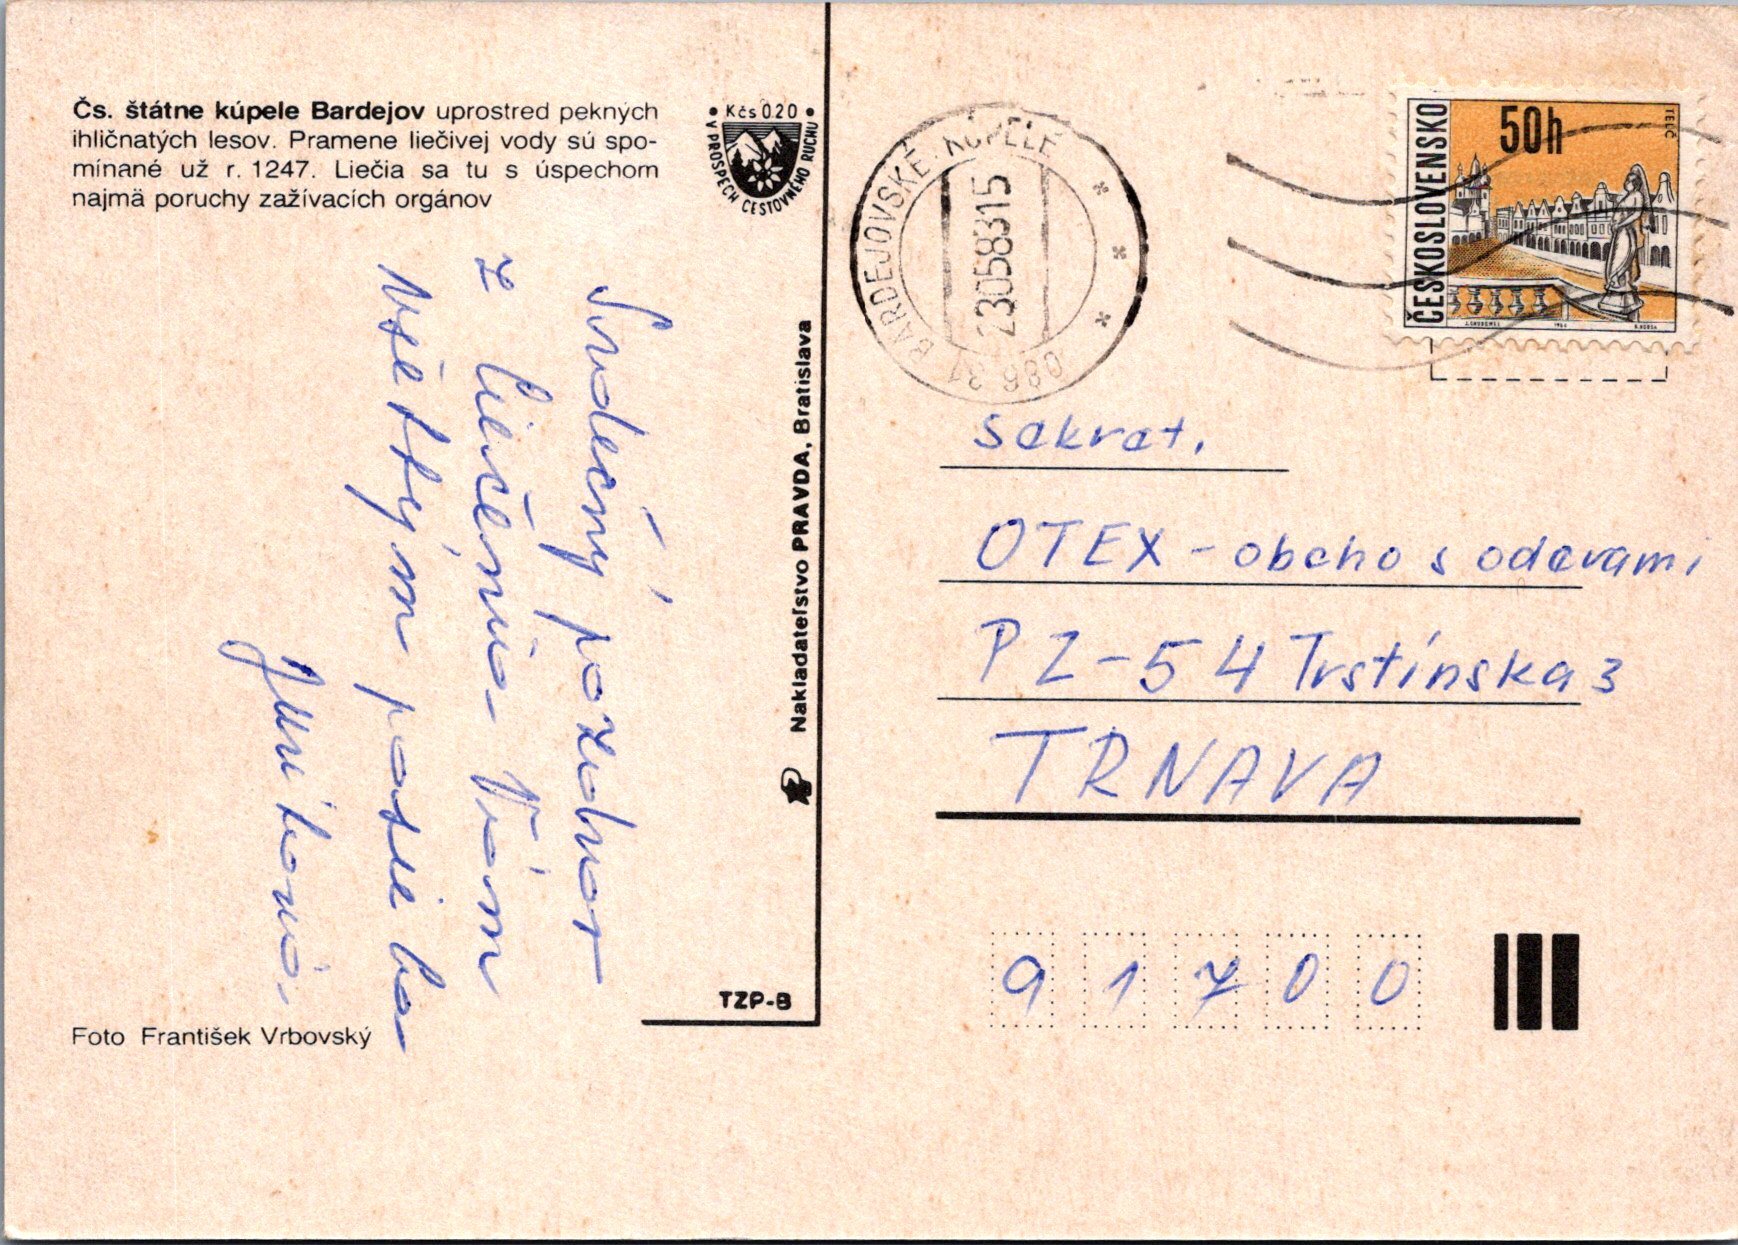 Čs. štátne kúpele Bardejov uprostred pekných
ihličnatých lesov. Pramene liečivej vody sú spo-
mínané už r. 1247. Liečia sa tu s úspechom
najmä poruchy zažívacích orgánov
Kčs 0.20
V PROSPECH CESTOVNÉHO RUCHU
Srdečný pozdrav
z liečenia Vám
všetkým posiela
Foto František Vrbovský
Nakladateľstvo PRAVDA, Bratislava
TZP-B
BARDEJOVSKÉ KÚPELE
23058315
086 31
ČESKOSLOVENSKO
50h
TELČ
sekret.
OTEX - obcho s odevami
PZ-54 Trstínska 3
TRNAVA
91700